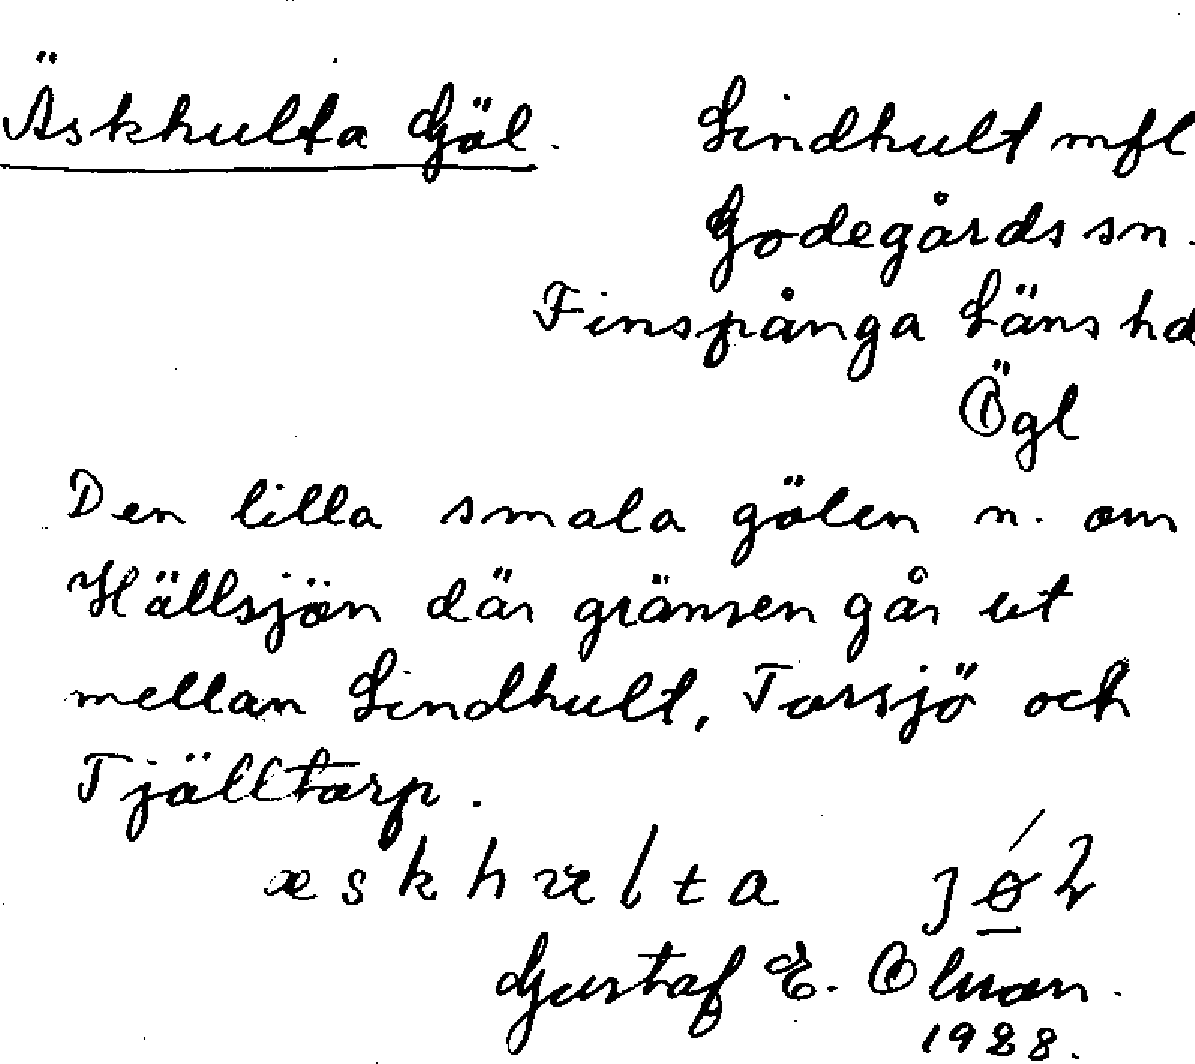 Äskhulta Göl. Lindhult mfl
Godegårds sn.
Finspånga Läns hd
Ögl
Den lilla smala gölen n. om
Hällsjön där gränsen går ut
mellan Lindhult, Torsjö och
Tjälltorp.
æskhulta
Gustaf E.
1928.